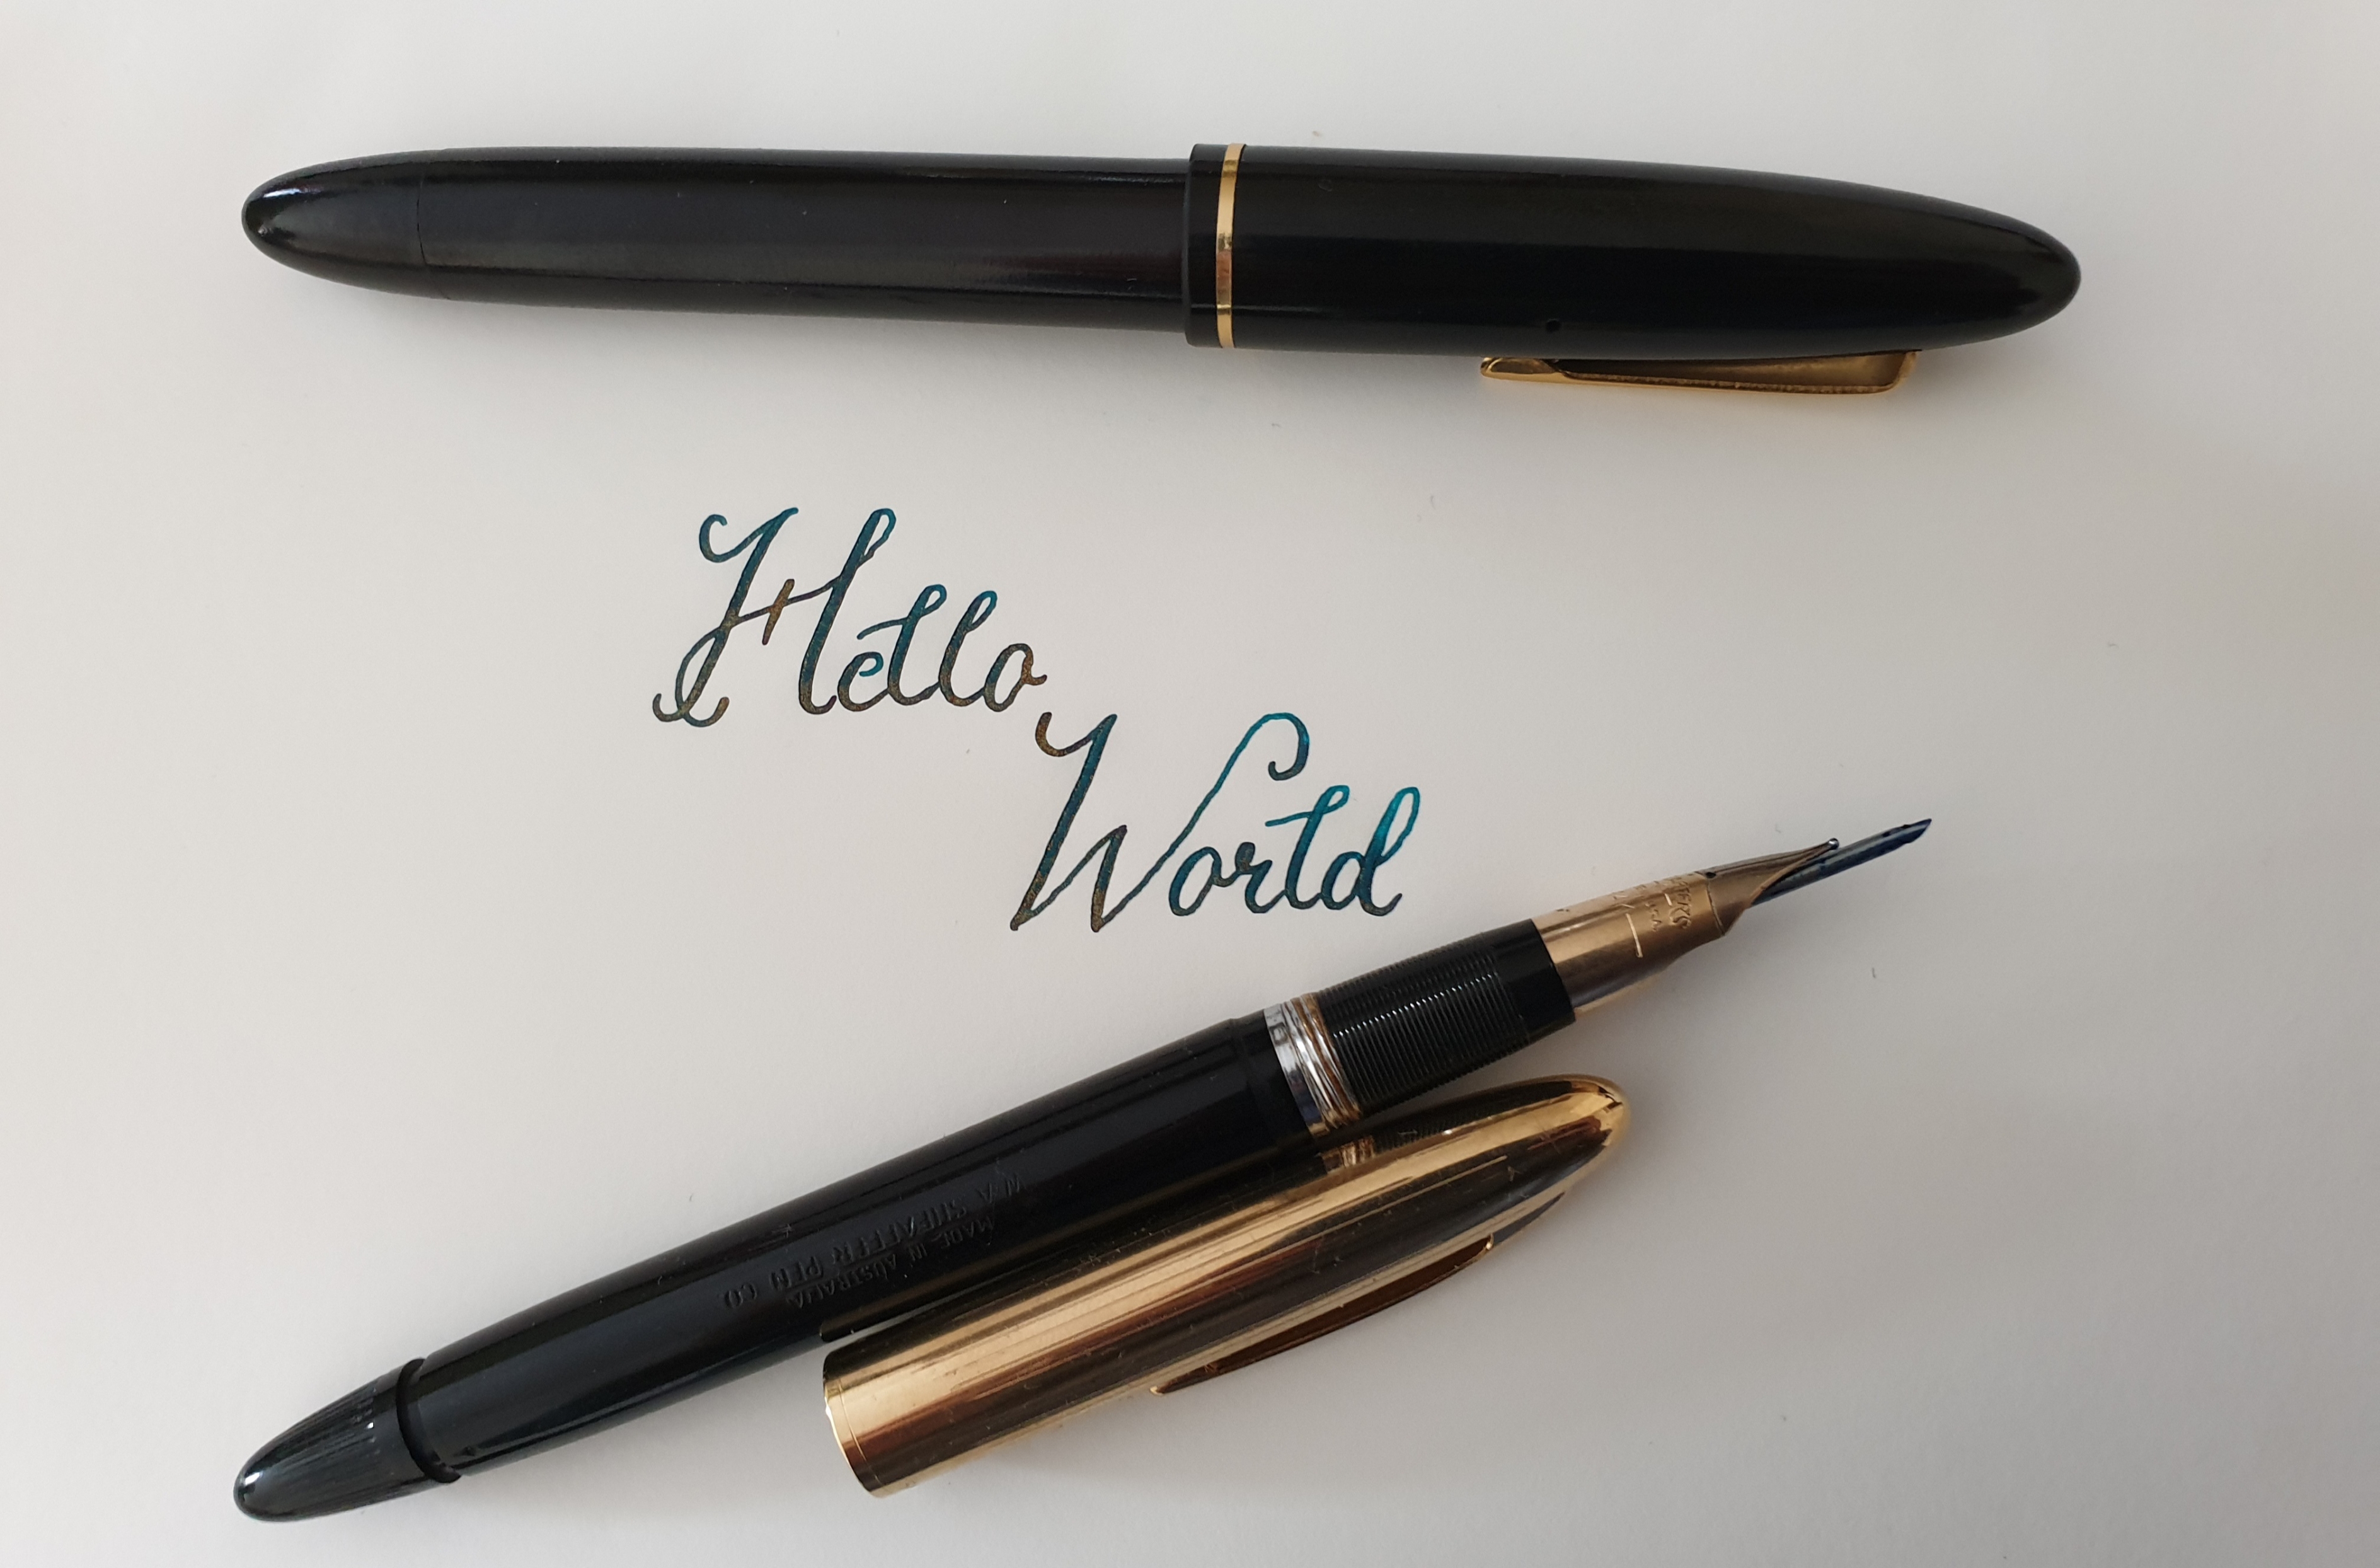 Hello
World
W.A. SHEAFFER PEN CO.
MADE IN AUSTRALIA